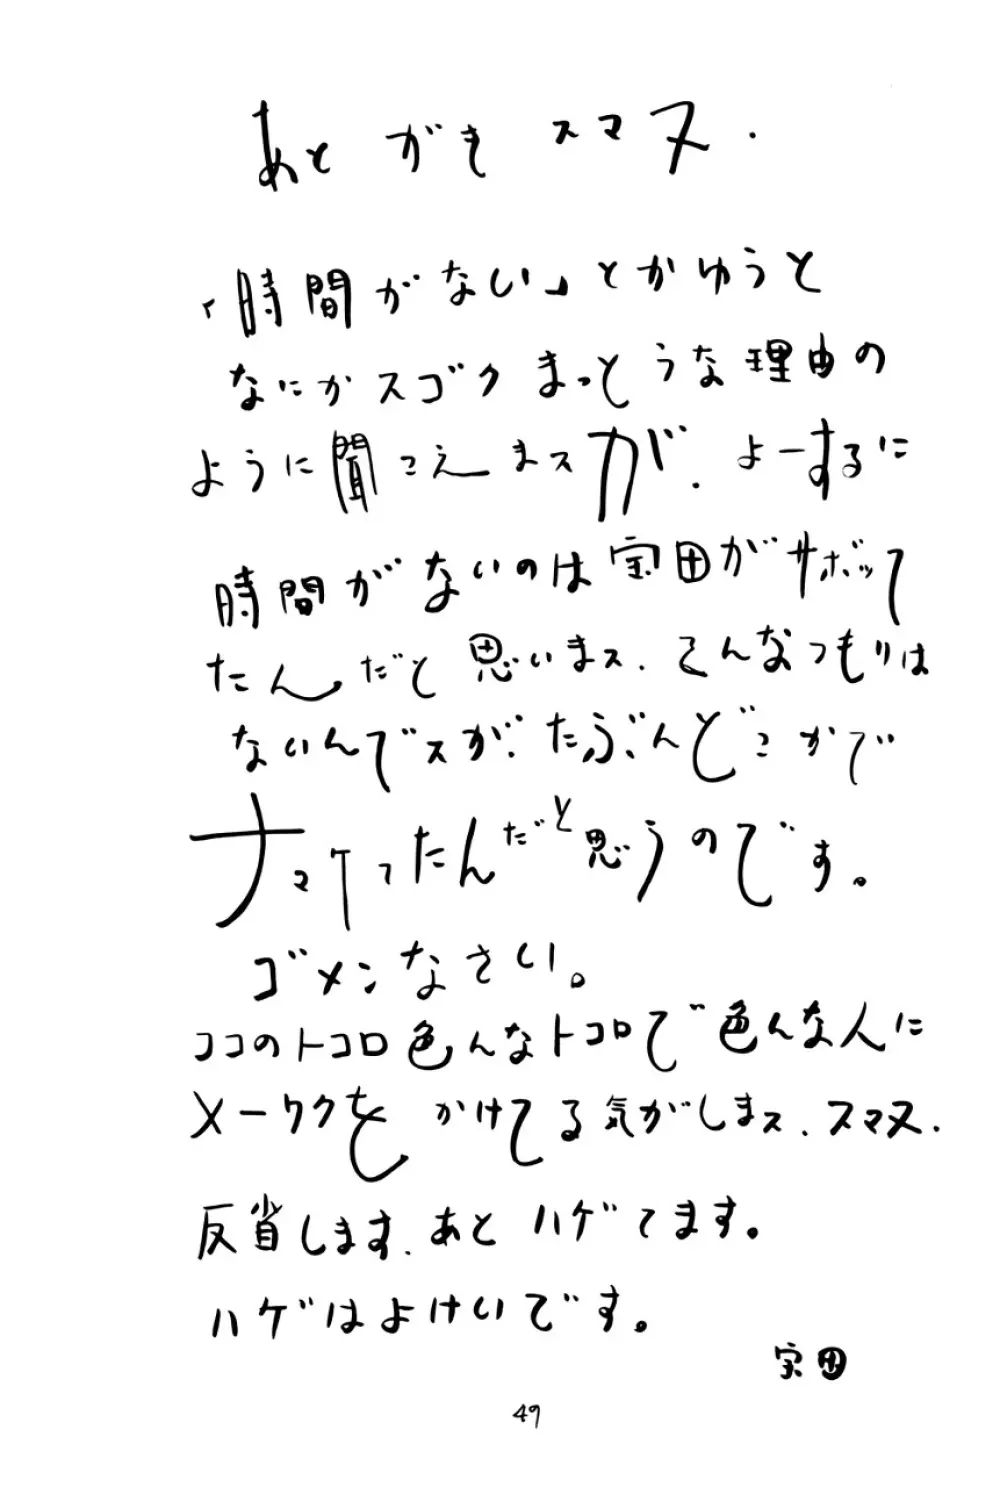 あとがきスマヌ.
「時間がない」とかゆうと
なにかスゴクまっとうな理由の
ように聞こえまスが. よーするに
時間がないのは宝田がサボッて
たんだと思いまス. そんなつもりは
ないんでスが. たぶんどこかで
ナマケったんだと思うのです。
ゴメンなさい。
ココのトコロ色んなトコロで色んな人に
メーワクをかけてる気がしまス. スマヌ.
反省します. あとハゲてます。
ハゲはよけいです。
宝田
49